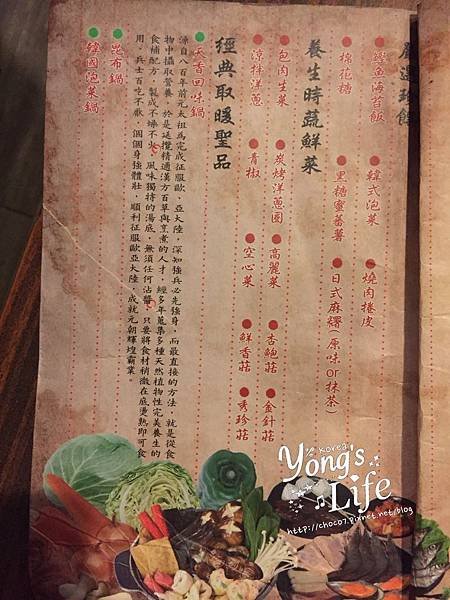 周邊珍饌
●鰹魚海苔飯 ●韓式泡菜 ●燒肉捲皮
●棉花糖 ●黑糖蜜蕃薯 ●日式麻糬(原味or抹茶)
養生時蔬鮮菜
●包肉生菜 ●炭烤洋蔥圈 ●高麗菜 ●杏鮑菇 ●金針菇
●涼拌洋蔥 ●青椒 ●空心菜 ●鮮香菇 ●秀珍菇
經典取暖聖品
●天香回味鍋
源自八百年前元太祖為完成征服歐、亞大陸，深知強兵必先強身，而最直接的方法，就是從食
物中攝取營養，於是延攬精通漢方百草與烹煮的人才，經多年蒐集多種天然植物性完美養生的
食補配方，製成不燥不火，風味獨特的湯底，無須任何沾醬，只要將食材稍微在底燙熟即可食
用，兵士百吃不厭，個個身強體壯，順利征服歐亞大陸，成就元朝輝煌霸業。
●昆布鍋
●韓國泡菜鍋
Korea
Yong's
Life
http://choco7.pixnet.net/blog